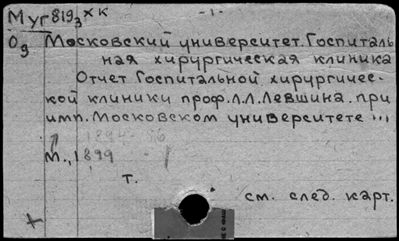 Муг819₃ хк -1-
Од Московский университет. Госпиталь
ная хирургическая клиника
Отчет Госпитальной хирургичес-
кой клинику проф. Л.Л. Левшина. при
имп. Московском университете ...
1894-96
М., 1899
т.
см. след. карт.